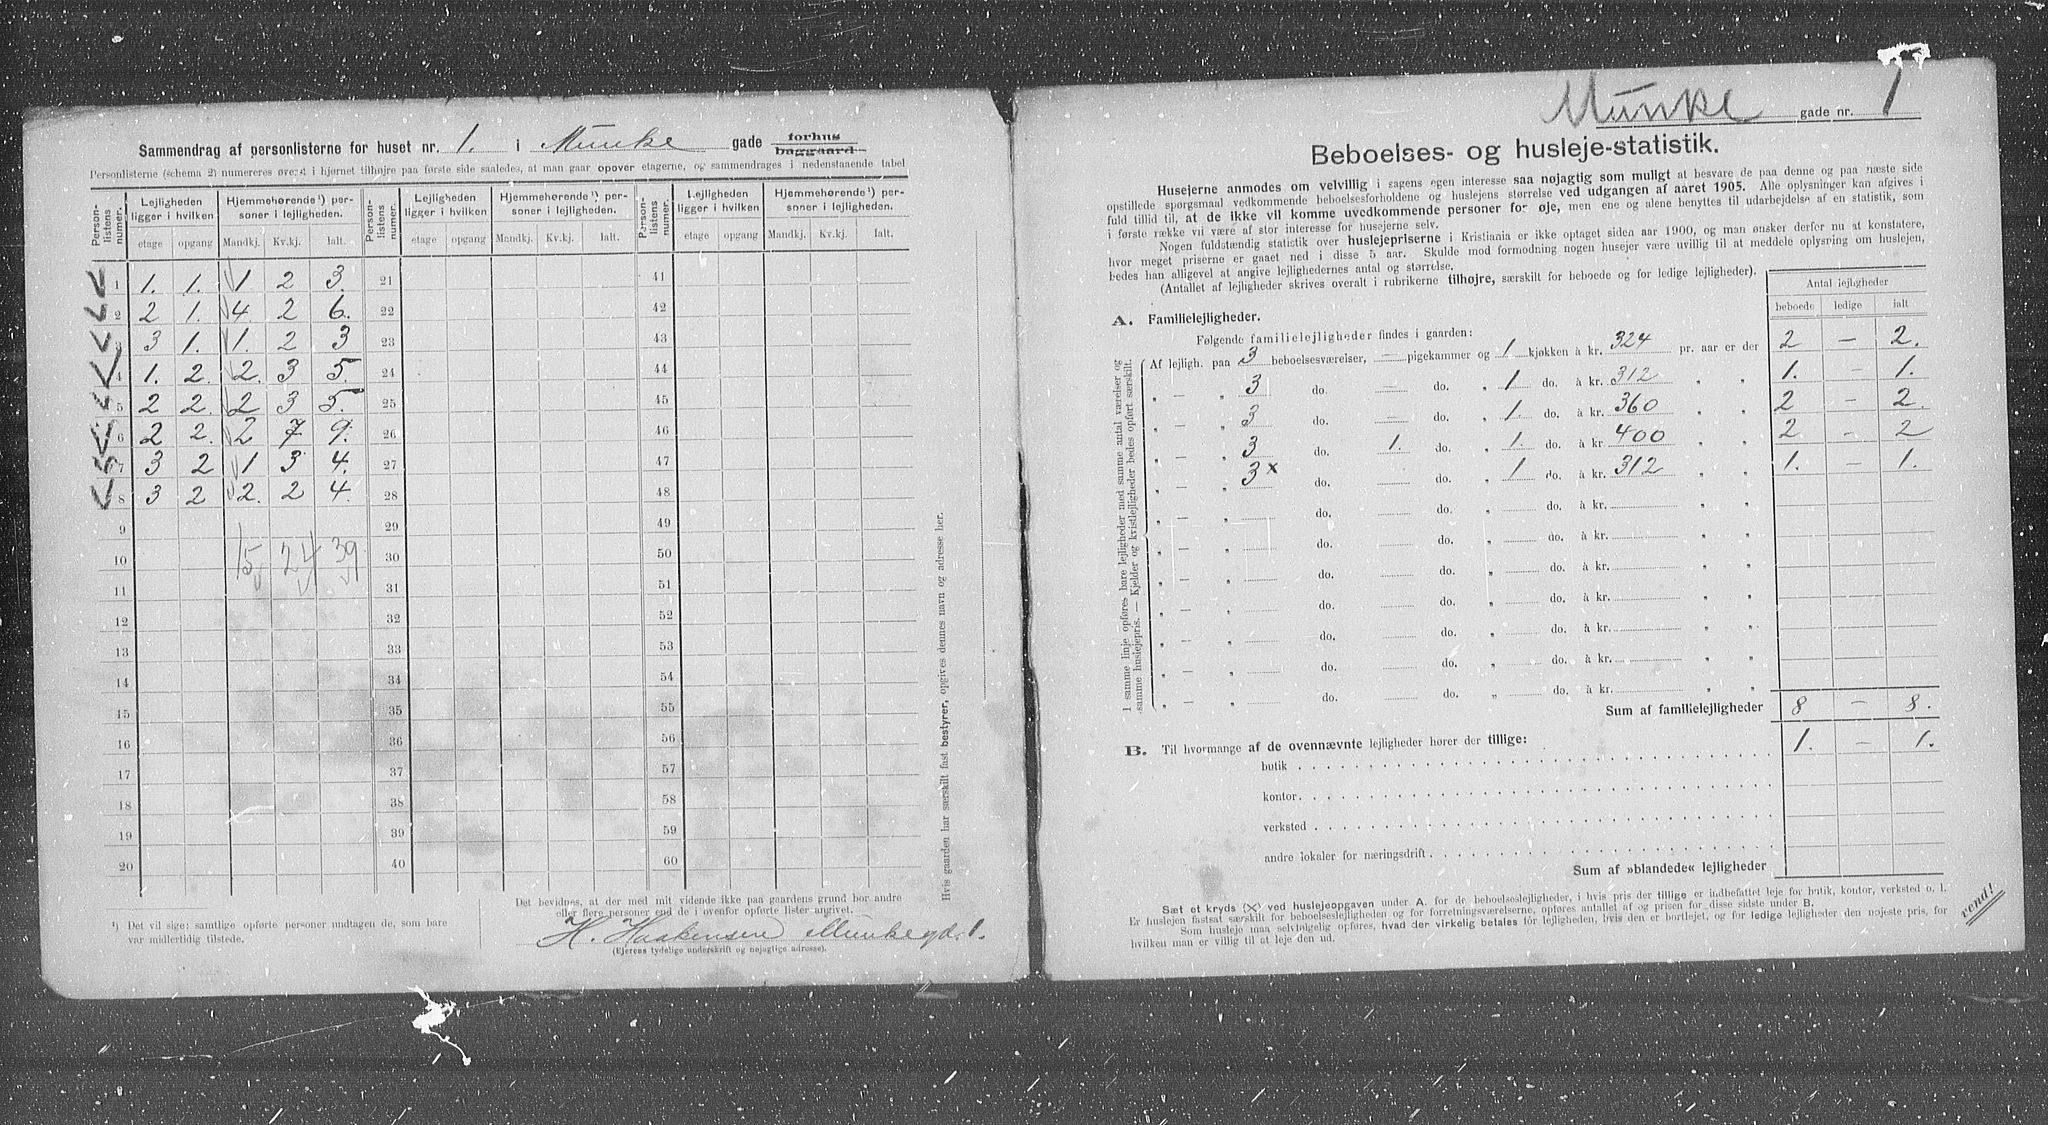 Sammendrag af personlisterne for huset nr. 1. i Munke gade forhus baggaard
Personlisterne (schema 2) numereres øverst i hjørnet tilhøjre paa første side saaledes, at man gaar opover etagerne, og sammendrages i nedenstaaende tabel
Person-listens nummer. Lejligheden ligger i hvilken Hjemmehørende ¹) personer i lejligheden. Person-listens nummer. Lejligheden ligger i hvilken Hjemmehørende ¹) personer i lejligheden. Person-listens nummer. Lejligheden ligger i hvilken Hjemmehørende ¹) personer i lejligheden.
etage opgang Mandkj. Kv.kj. Ialt. etage opgang Mandkj. Kv.kj. Ialt. etage opgang Mandkj. Kv.kj. Ialt.
1 1. 1. 1 2 3. 21 41
2 2 1. 4 2 6. 22 42
3 3 1. 1. 2 3 23 43
4 1. 2. 2. 3 5. 24 44
5 2 2. 2 3 5. 25 45
6 2 2. 2 7 9. 26 46
7 3 2 1 3 4. 27 47
8 3 2 2. 2 4. 28 48
9 29 49
10 15 24 39 30 50
11 31 51
12 32 52
13 33 53
14 34 54
15 35 55
16 36 56
17 37 57
18 38 58
19 39 59
20 40 60
Hvis gaarden har særskilt fast bestyrer, opgives dennes navn og adresse her.
¹) Det vil sige: samtlige opførte personer undtagen de, som bare
var midlertidig tilstede.
Det bevidnes, at der med mit vidende ikke paa gaardens grund bor andre
eller flere personer end de i ovenfor opførte lister angivet.
H. Haakensen Munkegd. 1.
(Ejerens tydelige underskrift og nøjagtige adresse).
Munke gade nr. 1
Beboelses- og husleje-statistik.
Husejerne anmodes om velvillig i sagens egen interesse saa nøjagtig som muligt at besvare de paa denne og paa næste side
opstillede spørgsmaal vedkommende beboelsesforholdene og huslejens størrelse ved udgangen af aaret 1905. Alle oplysninger kan afgives i
fuld tillid til, at de ikke vil komme uvedkommende personer for øje, men ene og alene benyttes til udarbejdelse af en statistik, som
i første række vil være af stor interesse for husejerne selv.
Nogen fuldstændig statistik over huslejepriserne i Kristiania er ikke optaget siden aar 1900, og man ønsker derfor nu at konstatere,
hvor meget priserne er gaaet ned i disse 5 aar. Skulde mod formodning nogen husejer være uvillig til at meddele oplysning om huslejen,
bedes han alligevel at angive lejlighedernes antal og størrelse.
(Antallet af lejligheder skrives overalt i rubrikerne tilhøjre, særskilt for beboede og for ledige lejligheder).
Antal lejligheder
beboede ledige ialt
A. Familielejligheder.
Følgende familielejligheder findes i gaarden:
I samme linje opføres bare lejligheder med samme antal værelser og
samme huslejepris. — Kjelder og kvistlejligheder bedes opført særskilt.
Af lejligh. paa 3 beboelsesværelser, — pigekammer og 1 kjøkken à kr. 324 pr. aar er der 2 — 2.
„ — „ 3 do. — do. „ 1 do. à kr. 312 „ „ 1. — 1.
„ — „ 3 do. — do. „ 1. do. à kr. 360 „ „ 2 — 2.
„ — „ 3 do. 1. do. „ 1. do. à kr. 400 „ „ 2 — 2
„ — „ 3 x do. do. „ 1 do. à kr. 312 „ „ 1. — 1.
„ — „ do. do. „ do. à kr. „ „
„ — „ do. do. „ do. à kr. „ „
„ — „ do. do. „ do. à kr. „ „
„ — „ do. do. „ do. à kr. „ „
„ — „ do. do. „ do. à kr. „ „
„ — „ do. do. „ do. à kr. „ „
„ — „ do. do. „ do. à kr. „ „
Sum af familielejligheder 8 — 8.
B. Til hvormange af de ovennævnte lejligheder hører der tillige: 1. — 1.
butik
kontor
verksted
andre lokaler for næringsdrift
Sum af »blandede« lejligheder
Sæt et kryds (X) ved huslejeopgaven under A. for de beboelseslejligheder, i hvis pris der tillige er indbefattet leje for butik, kontor, verksted o. l.
Er huslejen fastsat særskilt for beboelseslejligheden og for forretningsværelserne, opføres antallet af og prisen for disse sidste under B.
Som husleje maa selvfølgelig opføres, hvad der virkelig betales for lejligheden, hvis den er bortlejet, og for ledige lejligheder den nøjeste pris, for
hvilken man er villig til at leje den ud.
vend!